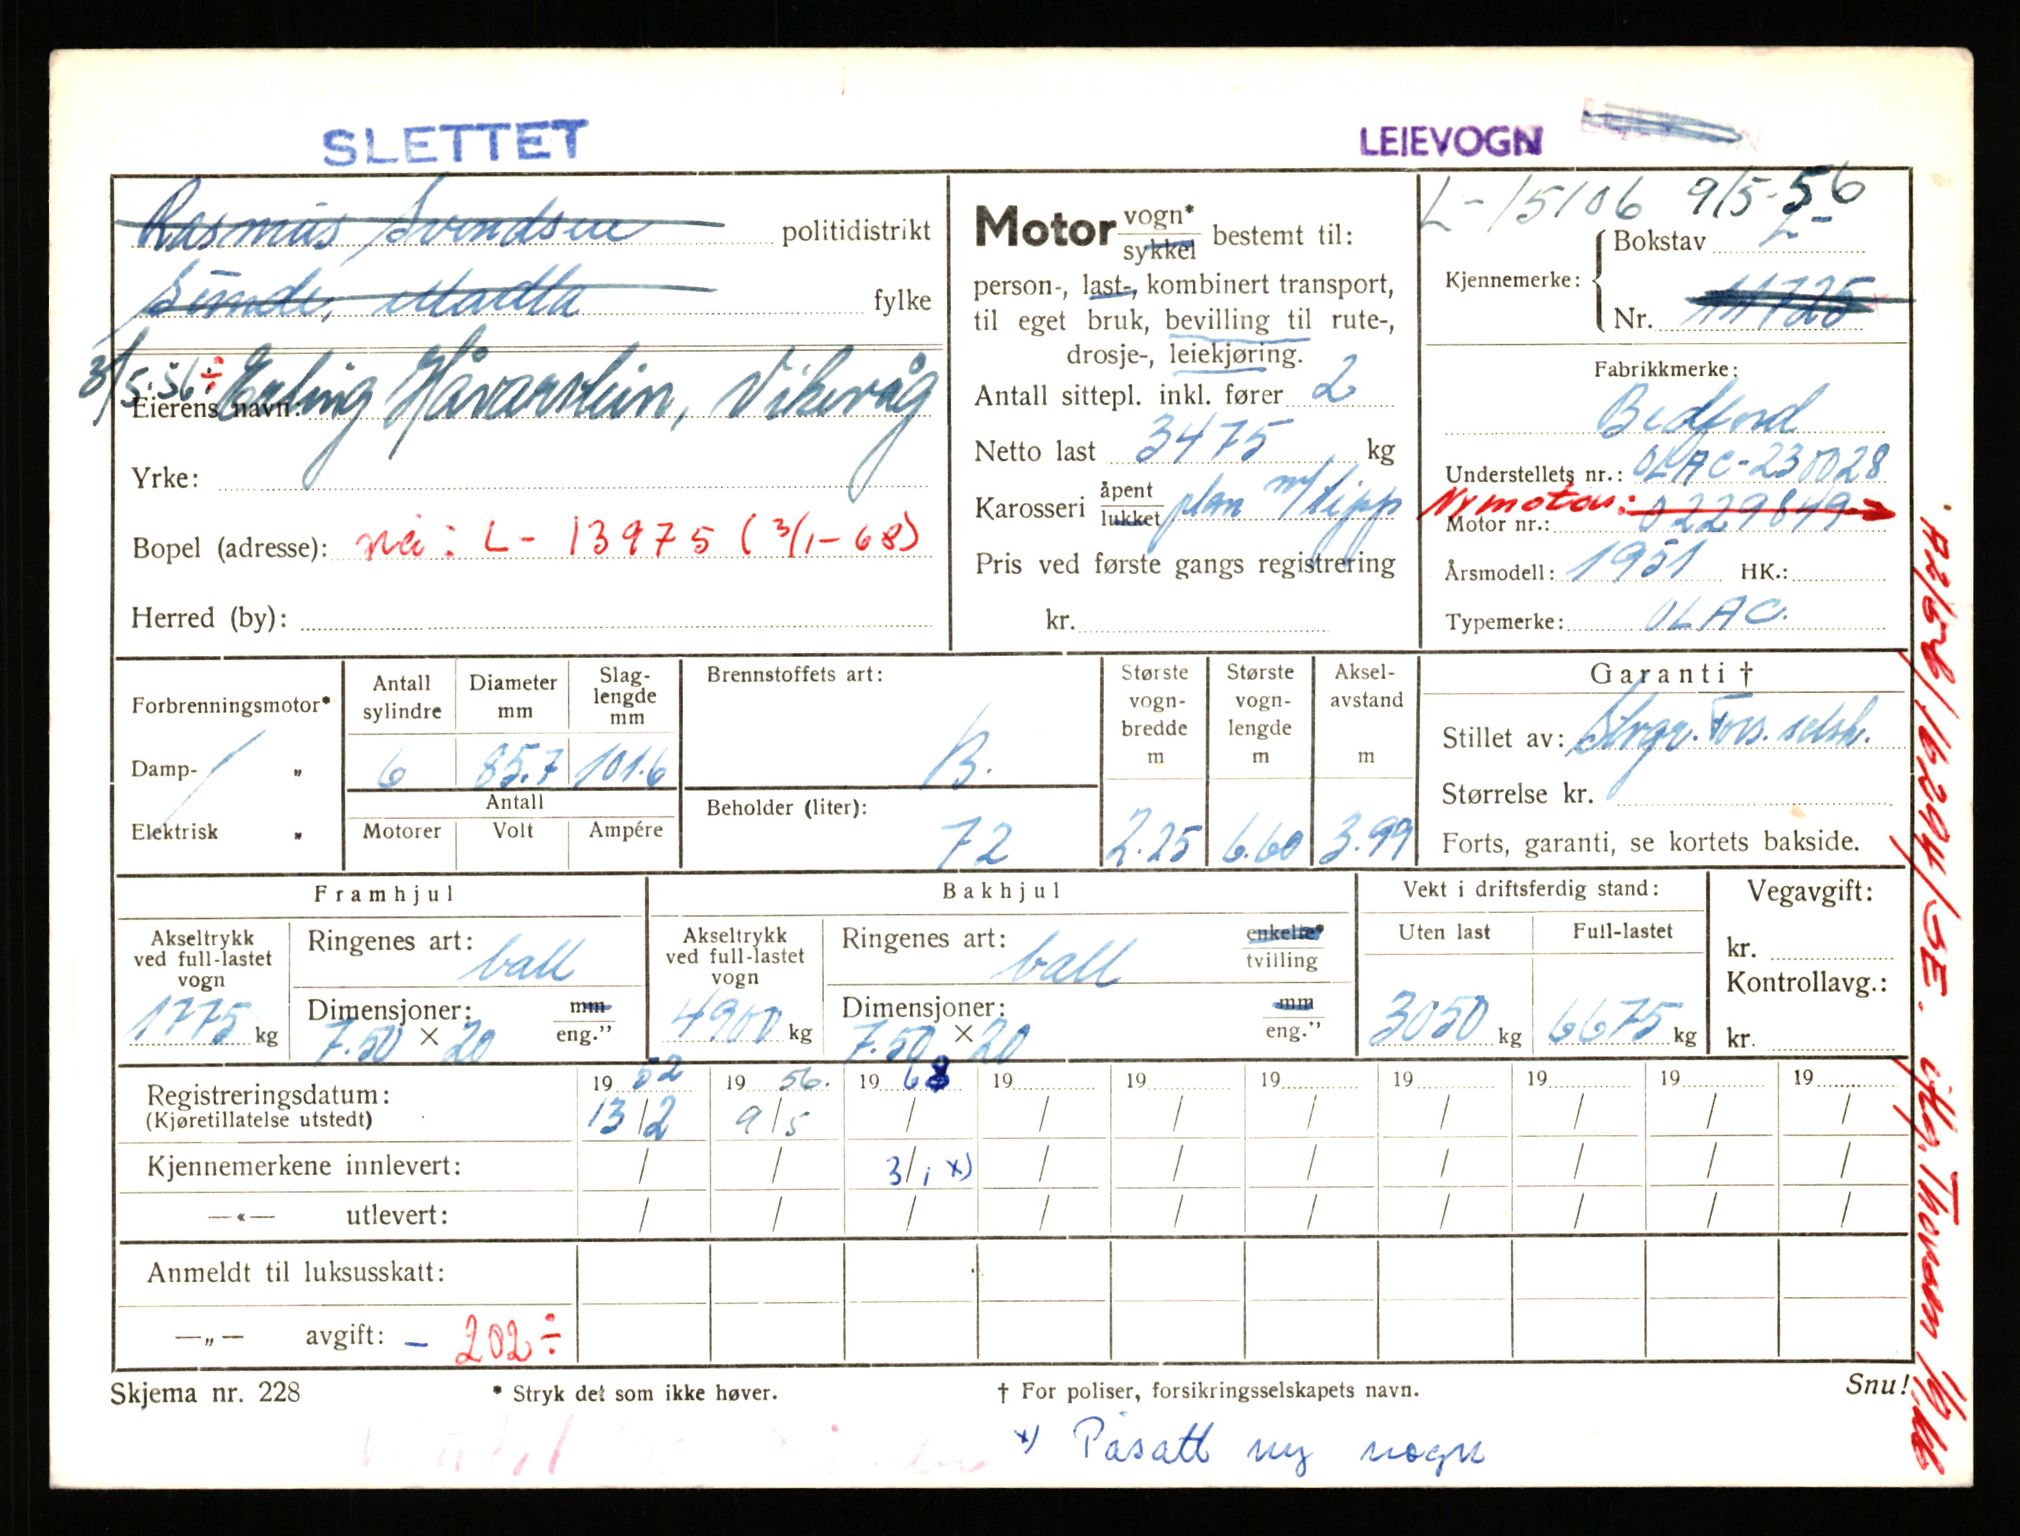 SLETTET
LEIEVOGN
L-15106 9/5-56
Rasmus Svendsen politidistrikt
Sunde, Madla fylke
3/5-56 ÷ Erling Håvarstein, Vikevåg
Eierens navn:
Yrke:
Bopel (adresse): L-13975 (3/1-68)
Herred (by):
Motor vogn* sykkel bestemt til:
person-, last-, kombinert transport,
til eget bruk, bevilling til rute-,
drosje-, leiekjøring.
Antall sittepl. inkl. fører 2
Netto last 3475 kg
Karosseri åpent lukket plan m/tipp
Pris ved første gangs registrering
kr.
Kjennemerke: Bokstav L-
Nr. 11725
Fabrikkmerke:
Bedford
Understellets nr.: OLAC-230028
Ny motor:
Motor nr.: 0229849
Årsmodell: 1951 HK.:
Typemerke: OLAC.
Forbrenningsmotor*
Damp- „
Elektrisk „
Antall sylindre Diameter mm Slag-lengde mm
6 85.7 101.6
Antall
Motorer Volt Ampére
Brennstoffets art:
B.
Beholder (liter):
72
Største vogn-bredde m Største vogn-lengde m Aksel-avstand m
2.25 6.60 3.99
Garanti †
Stillet av: Fors. selsk.
Størrelse kr.
Forts, garanti, se kortets bakside.
Framhjul
Akseltrykk ved full-lastet vogn
1775 kg
Ringenes art: ball
Dimensjoner: mm
7.50 × 20 eng."
Bakhjul
Akseltrykk ved full-lastet vogn
4900 kg
Ringenes art: ball enkelte* tvilling
Dimensjoner: mm
7.50 × 20 eng."
Vekt i driftsferdig stand:
Uten last Full-lastet
3050 kg 6675 kg
Vegavgift:
kr.
Kontrollavg.:
kr.
Registreringsdatum: 19 52 19 56. 19 68 19 19 19 19 19 19 19
(Kjøretillatelse utstedt) 13/2 9/5 / / / / / / / /
Kjennemerkene innlevert: / / 3/1 x) / / / / / / /
—«— utlevert: / / / / / / / / / /
Anmeldt til luksusskatt:
—„— avgift: - 202÷
Skjema nr. 228 * Stryk det som ikke høver. † For poliser, forsikringsselskapets navn. Snu!
x) Påsatt ny vogn